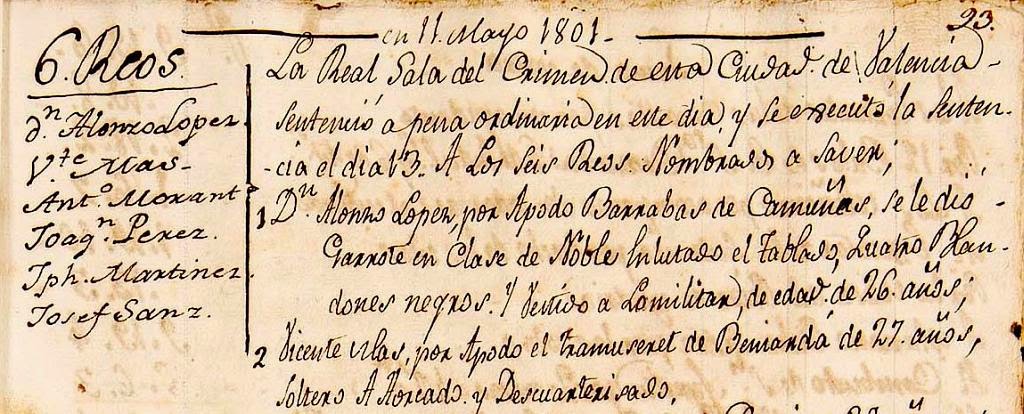 23.
en 11. Mayo 1801.
6. Reos.
Dn. Alonzo Lopez.
Vte. Mas-
Anto. Morant
Joaqn. Perez.
Jph. Martinez.
Josef Sanz.
La Real Sala del Crimen de esta Ciudad. de Valencia-
sentenció a pena ordinaria en este dia, y se executó la senten-
-cia el dia 13. A Los seis Reos. Nombrados a saver;
1 Dn. Alonzo Lopez, por Apodo Barrabas de Camuñas, se le dió-
Garrote en Clase de Noble Enlutado el Tablado, Quatro Blan-
dones negros. y Vestido a Lo militar, de edad. de 26. años;
2 Vicente Mas, por Apodo el Tramuseret de Beniardá de 27. años,
soltero A Horcado. y Descuarterisado,